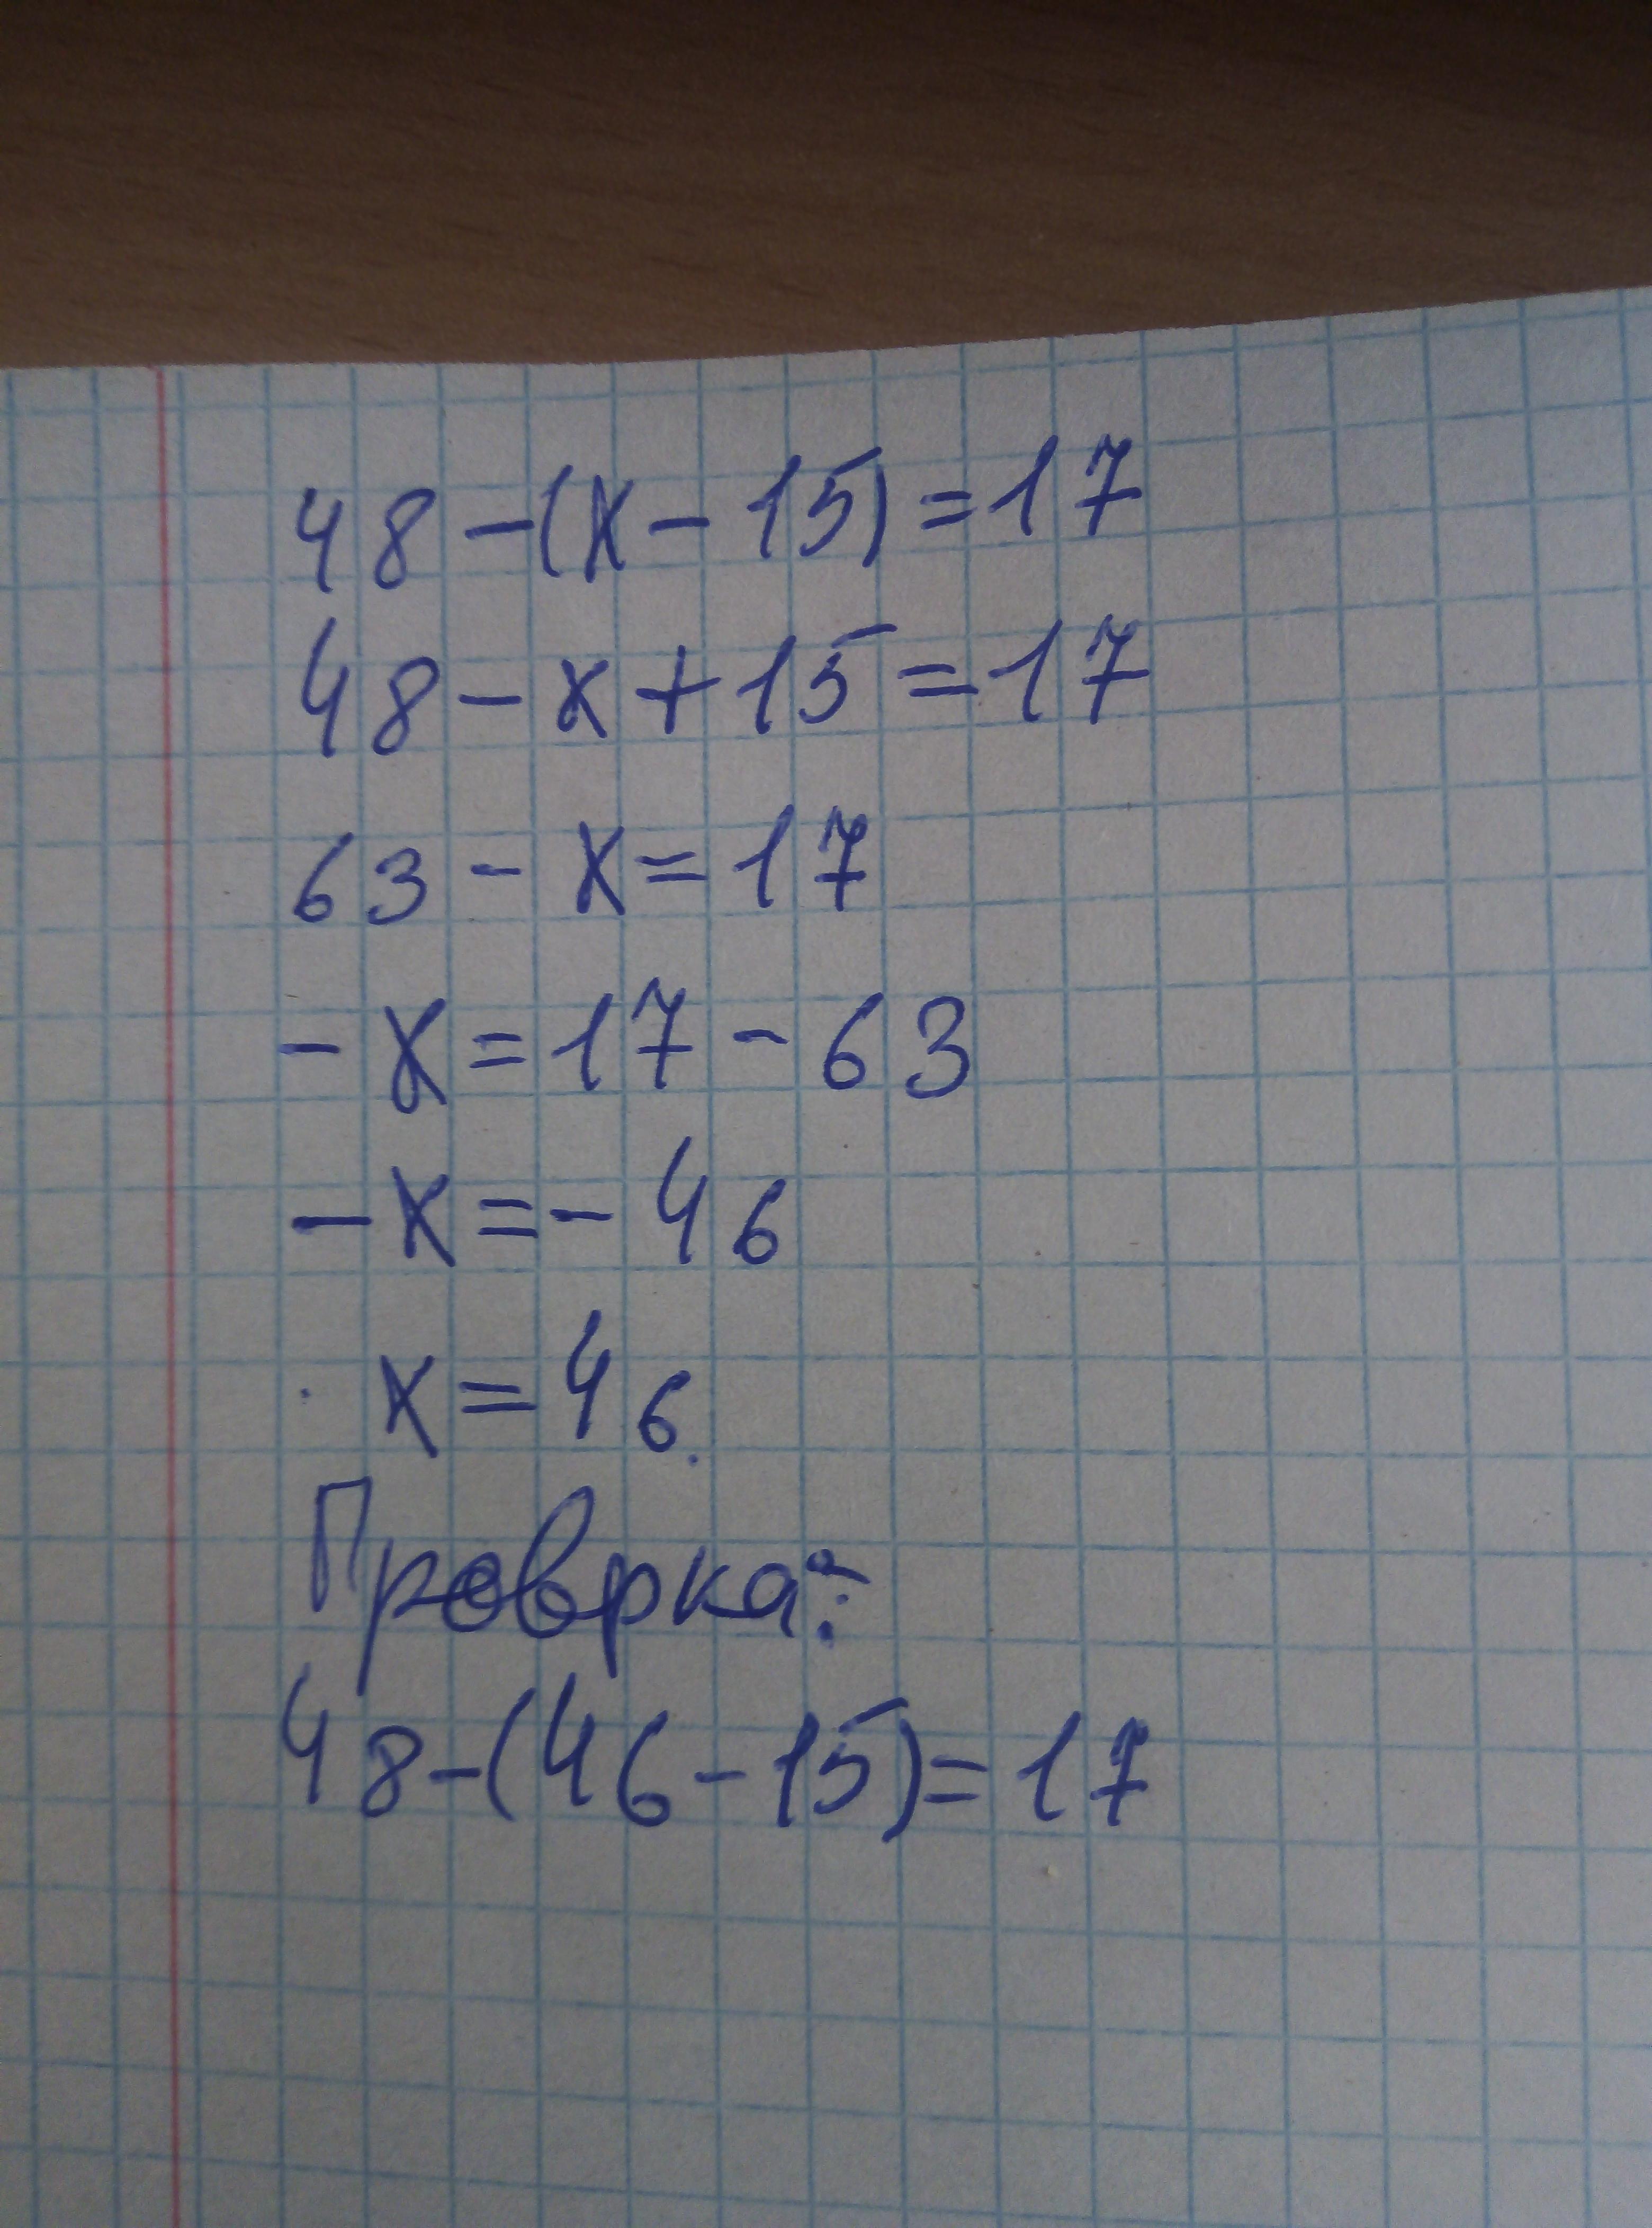 48-(x-15)=17
48-x+15=17
63-x=17
-x=17-63
-x=-46
x=46.
Проврка:
48-(46-15)=17